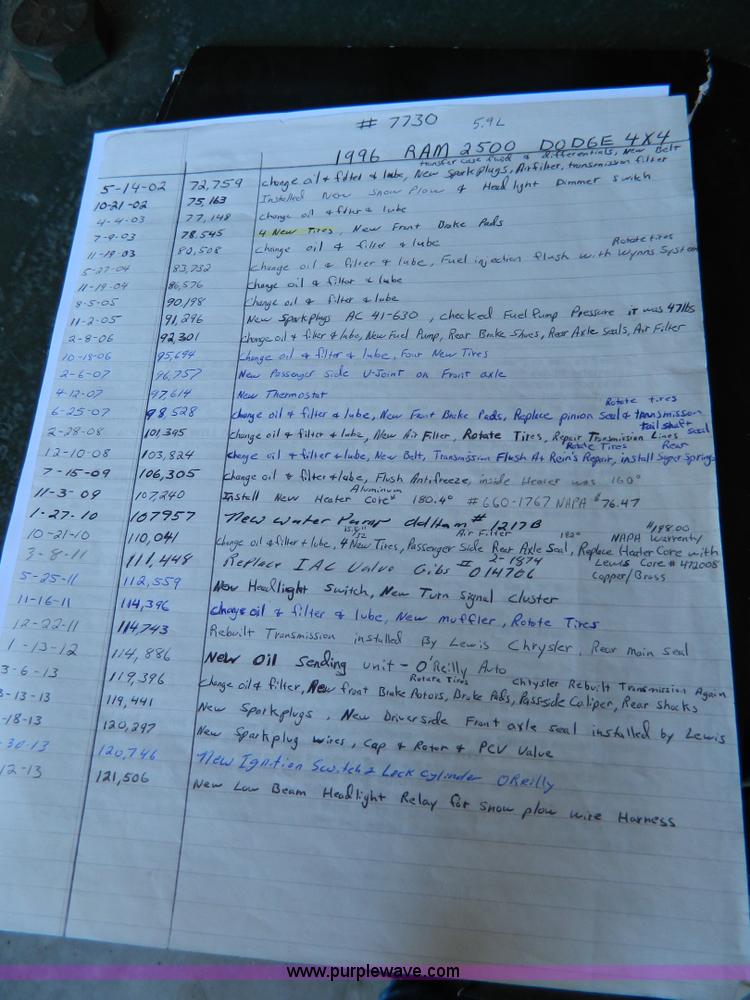 # 7730 5.9L
1996 RAM 2500 DODGE 4X4
transfer case fluid & differentials, New Belt
5-14-02 72,759 change oil & filter & lube, New Sparkplugs, Air filter, transmission filter
10-21-02 75,163 Installed New Snow Plow & Headlight Dimmer Switch
4-4-03 77,148 change oil & filter & lube
7-9-03 78,545 4 New Tires, New Front Brake Pads
11-19-03 80,508 change oil & filter & lube Rotate tires
5-27-04 83,732 change oil & filter & lube, Fuel injection flush with Wynns System
11-19-04 86,576 change oil & filter & lube
8-5-05 90,198 change oil & filter & lube
11-2-05 91,296 New Sparkplugs AC 41-630, checked Fuel Pump Pressure it was 47lbs
2-8-06 92,301 change oil & filter & lube, New Fuel Pump, Rear Brake Shoes, Rear Axle Seals, Air Filter
10-18-06 95,694 Change oil & filter & lube, Four New Tires
2-6-07 96,757 New Passenger Side U-Joint on Front axle
4-12-07 97,614 New Thermostat Rotate tires
6-25-07 98,528 change oil & filter & lube, New Front Brake Pads, Replace pinion Seal & transmission tailshaft Seal
2-28-08 101,395 change oil & filter & lube, New Air Filter, Rotate Tires, Repair Transmission Lines
Rotate Tires Rear
12-10-08 103,824 change oil & filter & lube, New Belt, Transmission Flush At Rein's Repair, install Super Springs
7-15-09 106,305 change oil & filter & lube, Flush Antifreeze, inside Heater was 160°
Aluminum
11-3-09 107,240 Install New Heater Core 180.4° #660-1767 NAPA $76.47
1-27-10 107957 New water Pump #1217B
Air Filter 182° $198.00 NAPA Warrenty
10-21-10 110,041 Change oil & filter & lube, 4 New Tires, Passenger Side Rear Axle Seal, Replace Heater Core with
3-8-11 111,448 Replace IAC Valve Gibs # 2-1874 014766 Lewis Core # 472008
Copper/Brass
5-25-11 112,559 New Headlight Switch, New Turn Signal Cluster
11-16-11 114,396 change oil & filter & lube, New muffler, Rotate Tires
12-22-11 114,743 Rebuilt Transmission installed By Lewis Chrysler, Rear main seal
1-13-12 114,886 New Oil Sending unit - O'Reilly Auto
Rotate Tires Chrysler Rebuilt Transmission Again
3-6-13 119,396 Change oil & filter, New front Brake Rotors, Brake Pads, Passside Caliper, Rear Shocks
3-13-13 119,441 New Sparkplugs, New Driverside Front axle seal installed by Lewis
-18-13 120,297 New Sparkplug wires, Cap & Rotor & PCV Valve
-30-13 120,746 New Ignition Switch & Lock Cylinder OReilly
12-13 121,506 New Low Beam Headlight Relay for snow plow wire Harness
www.purplewave.com